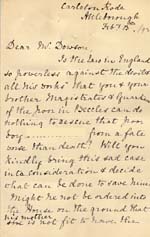 Carleton Rode
Attleborough
Feb 15 /92
Dear Mr. Dowson.
Is the law in England
so powerless against the devil &
all his works that you & your
brother Magistrates & Guard
of the poor in Beccles can do
nothing to rescue that poor
boy from a fate
worse than death? Will you
kindly bring this sad case
into consideration & decide
what can be done to save him.
Might he not be ordered into
the House on the ground that
his mother
she is not fit to have the